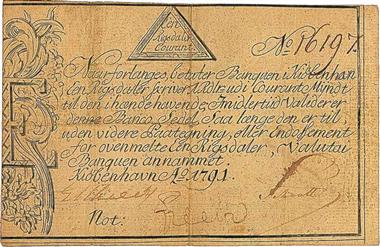 Een
Rigsdaler
Courant.
No. 16197.
Naar forlanges, betaler Banquen i Kiöbenhavn
Een Rigsdaler, skriver 1 Rdlr. udi Courant Myndt
til den ihændehavende, Imidlertid Validerer
denne Banco-Sedel, Saa længe den er til,
uden videre Paategning, eller Endossement
for ovenmelte Een Rigsdaler, Valuta i
Banquen annammet.
Kiöbenhavn Ao. 1791.
Not: